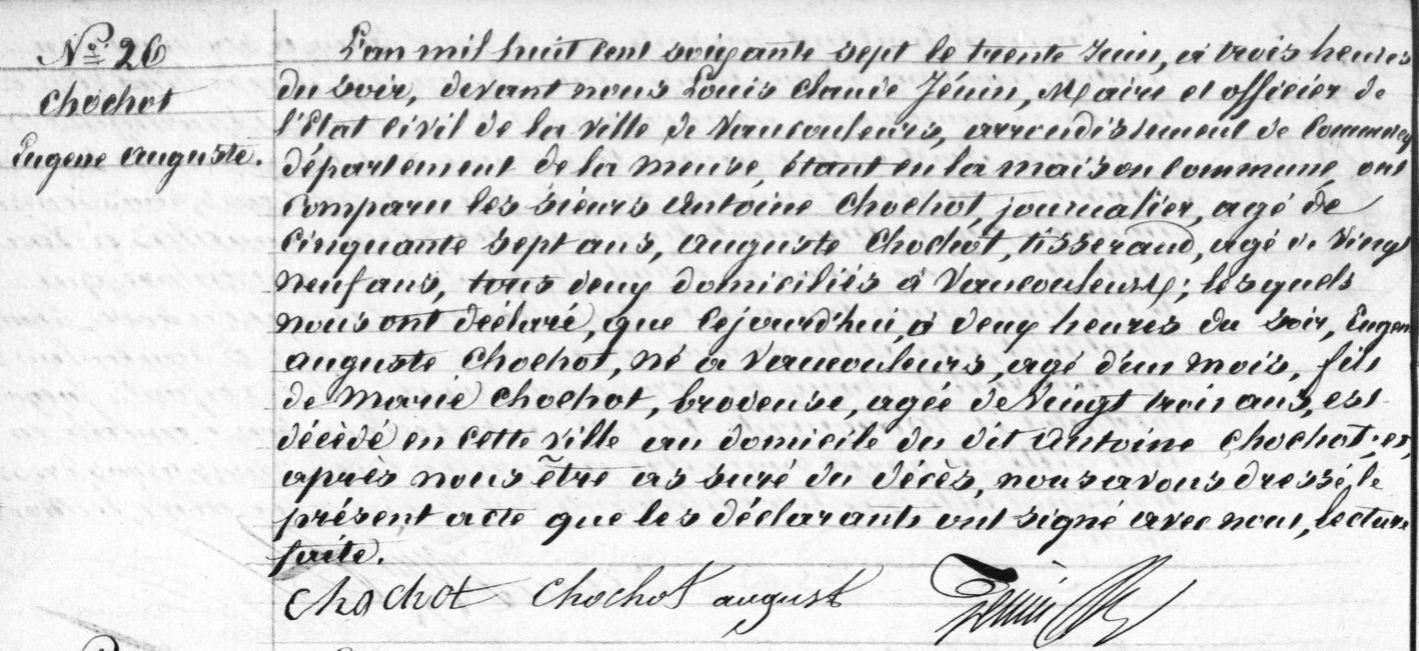 Nº 26
Chochot
Eugene Auguste.
L'an mil huit cent soixante sept le trente Juin, à trois heures
du soir, devant nous Louis Claude Jénin, Maire et officier de
l'Etat civil de la ville de Vaucouleurs, arrondissement de Commercy
département de la Meuse, étant en la maison commune, ont
comparu les sieurs Antoine Chochot, journalier, agé de
cinquante sept ans, Auguste Chochot, tisserand, agé de vingt
neuf ans, tous deux domiciliés à Vaucouleurs; lesquels
nous ont déclaré, que cejourd'hui, à deux heures du soir, Eugene
Auguste Chochot, né à Vaucouleurs, agé d'un mois, fils
de Marie Chochot, brodeuse, agée de vingt trois ans, est
décédé en cette ville au domicile du dit Antoine Chochot; et,
après nous être assuré du décès, nous avons dressé, le
présent acte que les déclarants ont signé avec nous, lecture
faite.
Chochot Chochot august Jénin